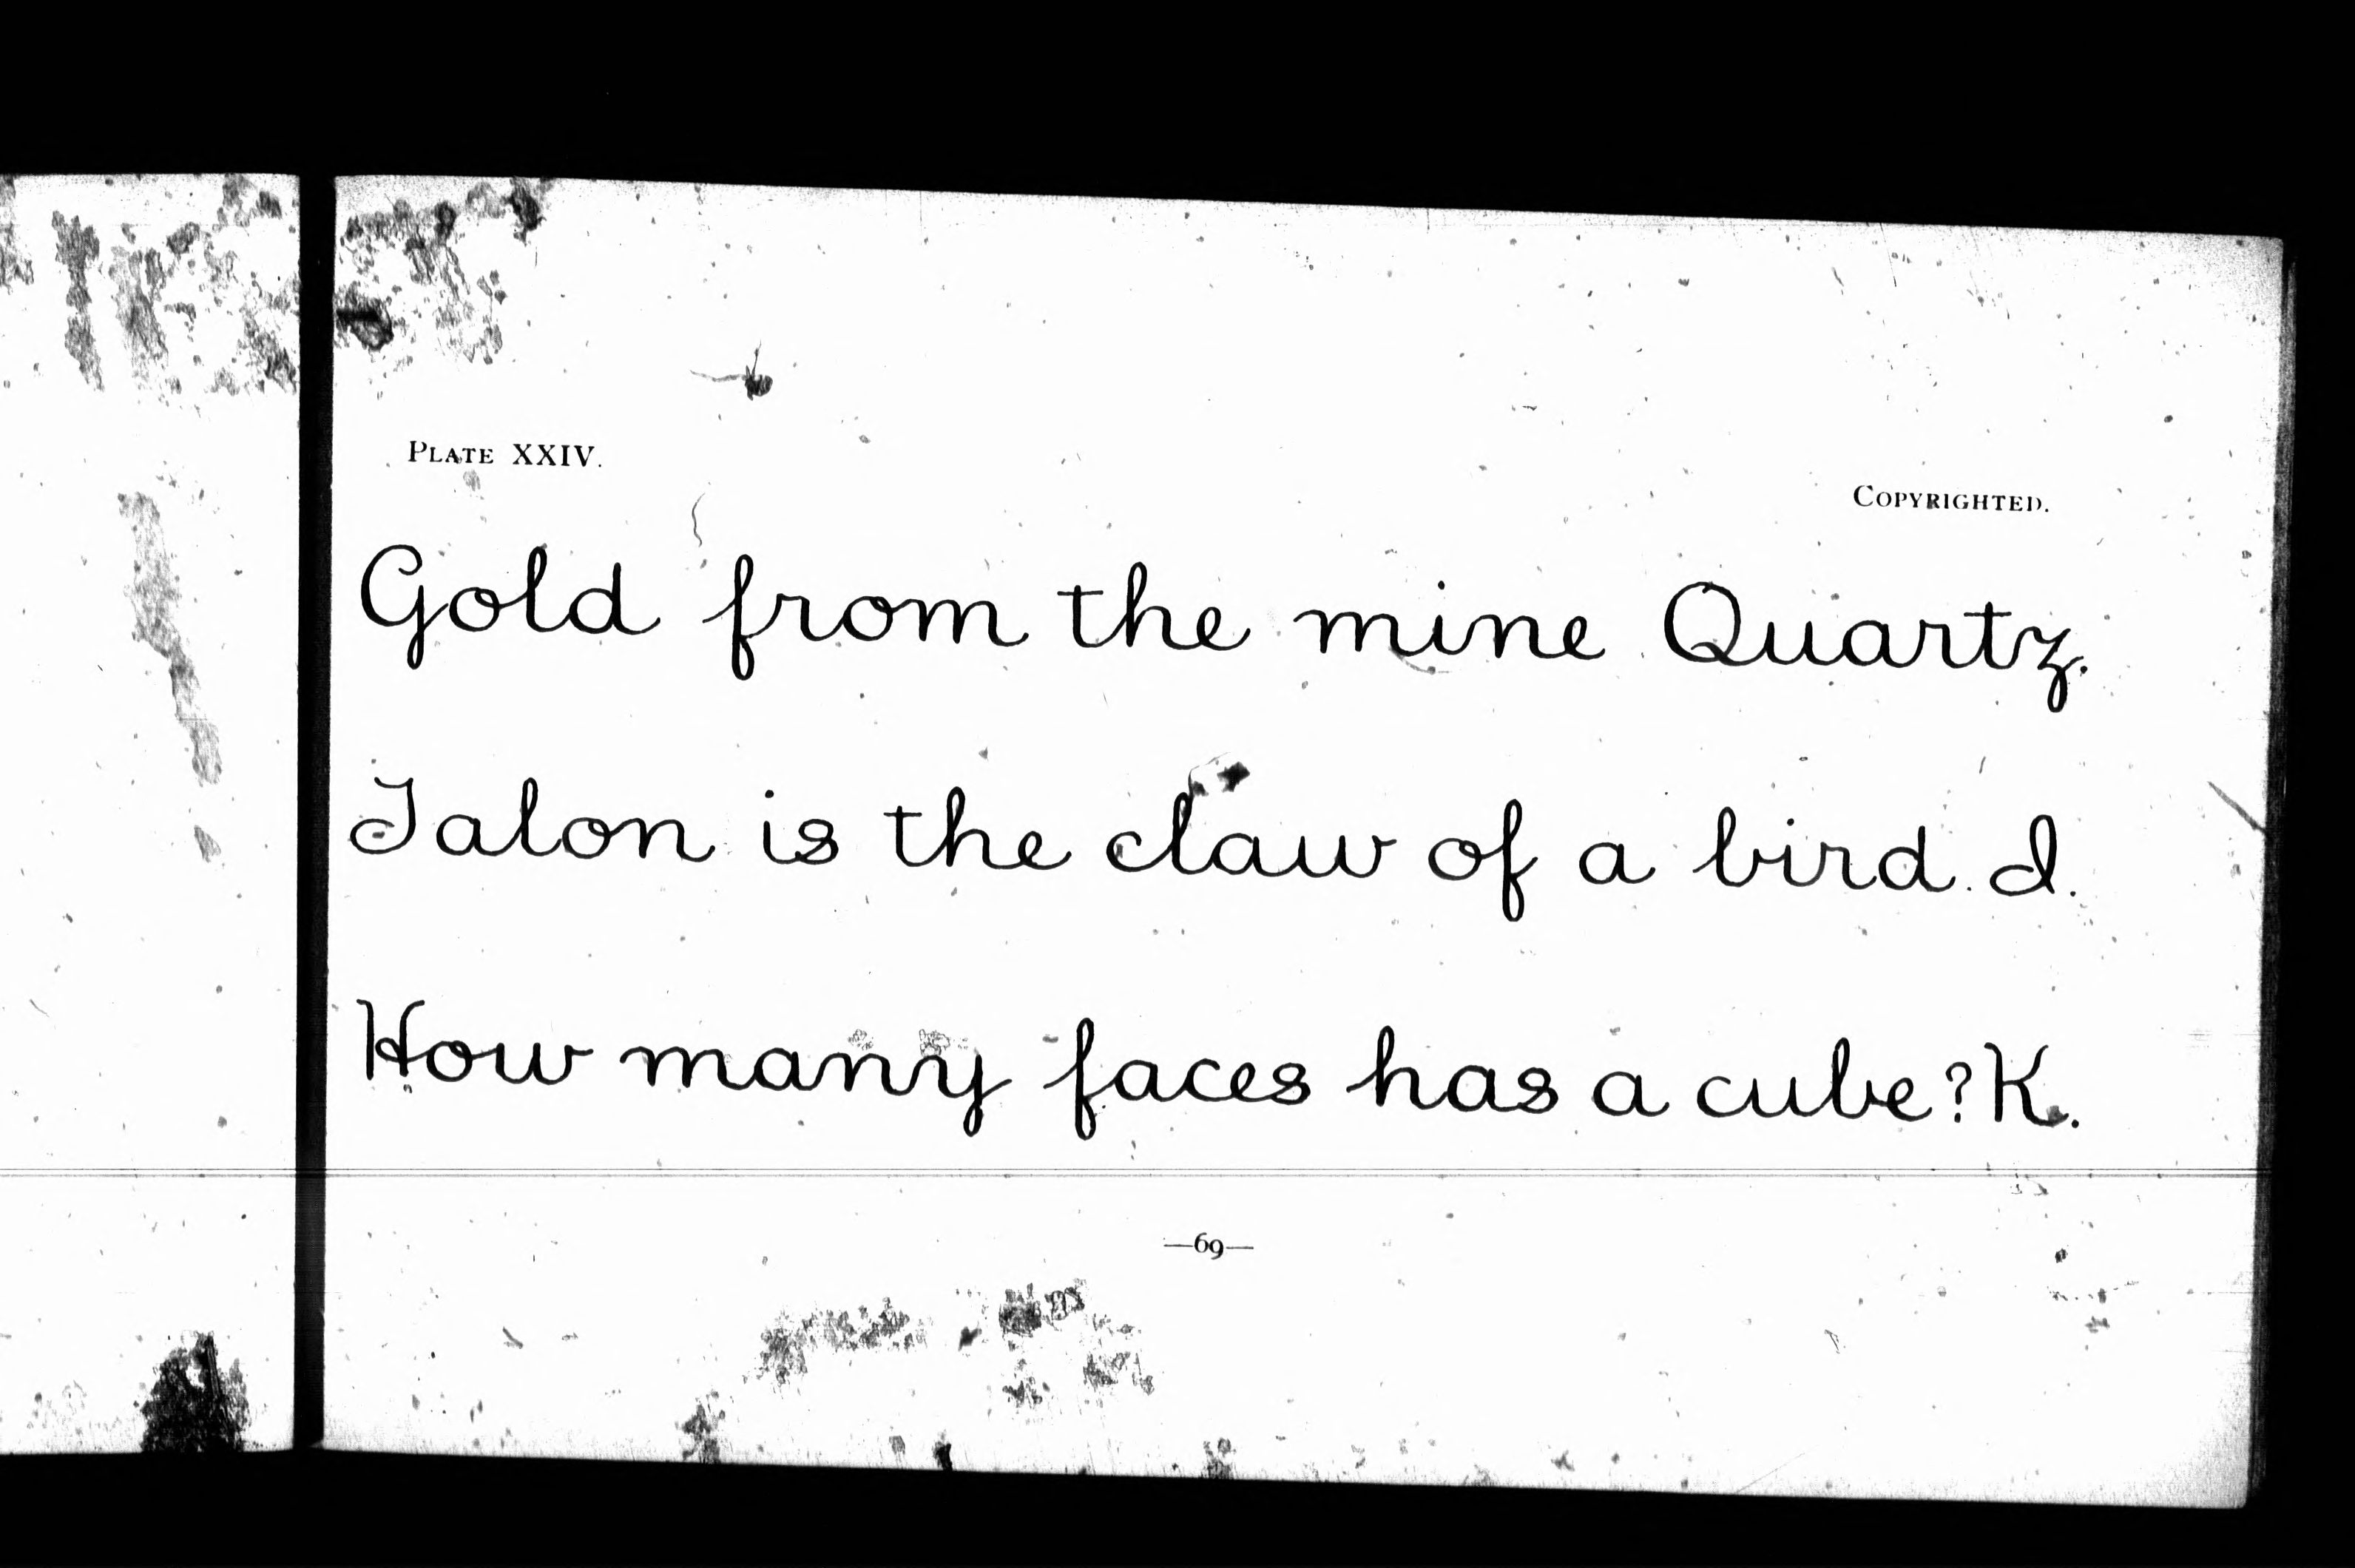 PLATE XXIV.
COPYRIGHTED.
Gold from the mine Quartz.
Talon is the claw of a bird. I.
How many faces has a cube? K.
—69—